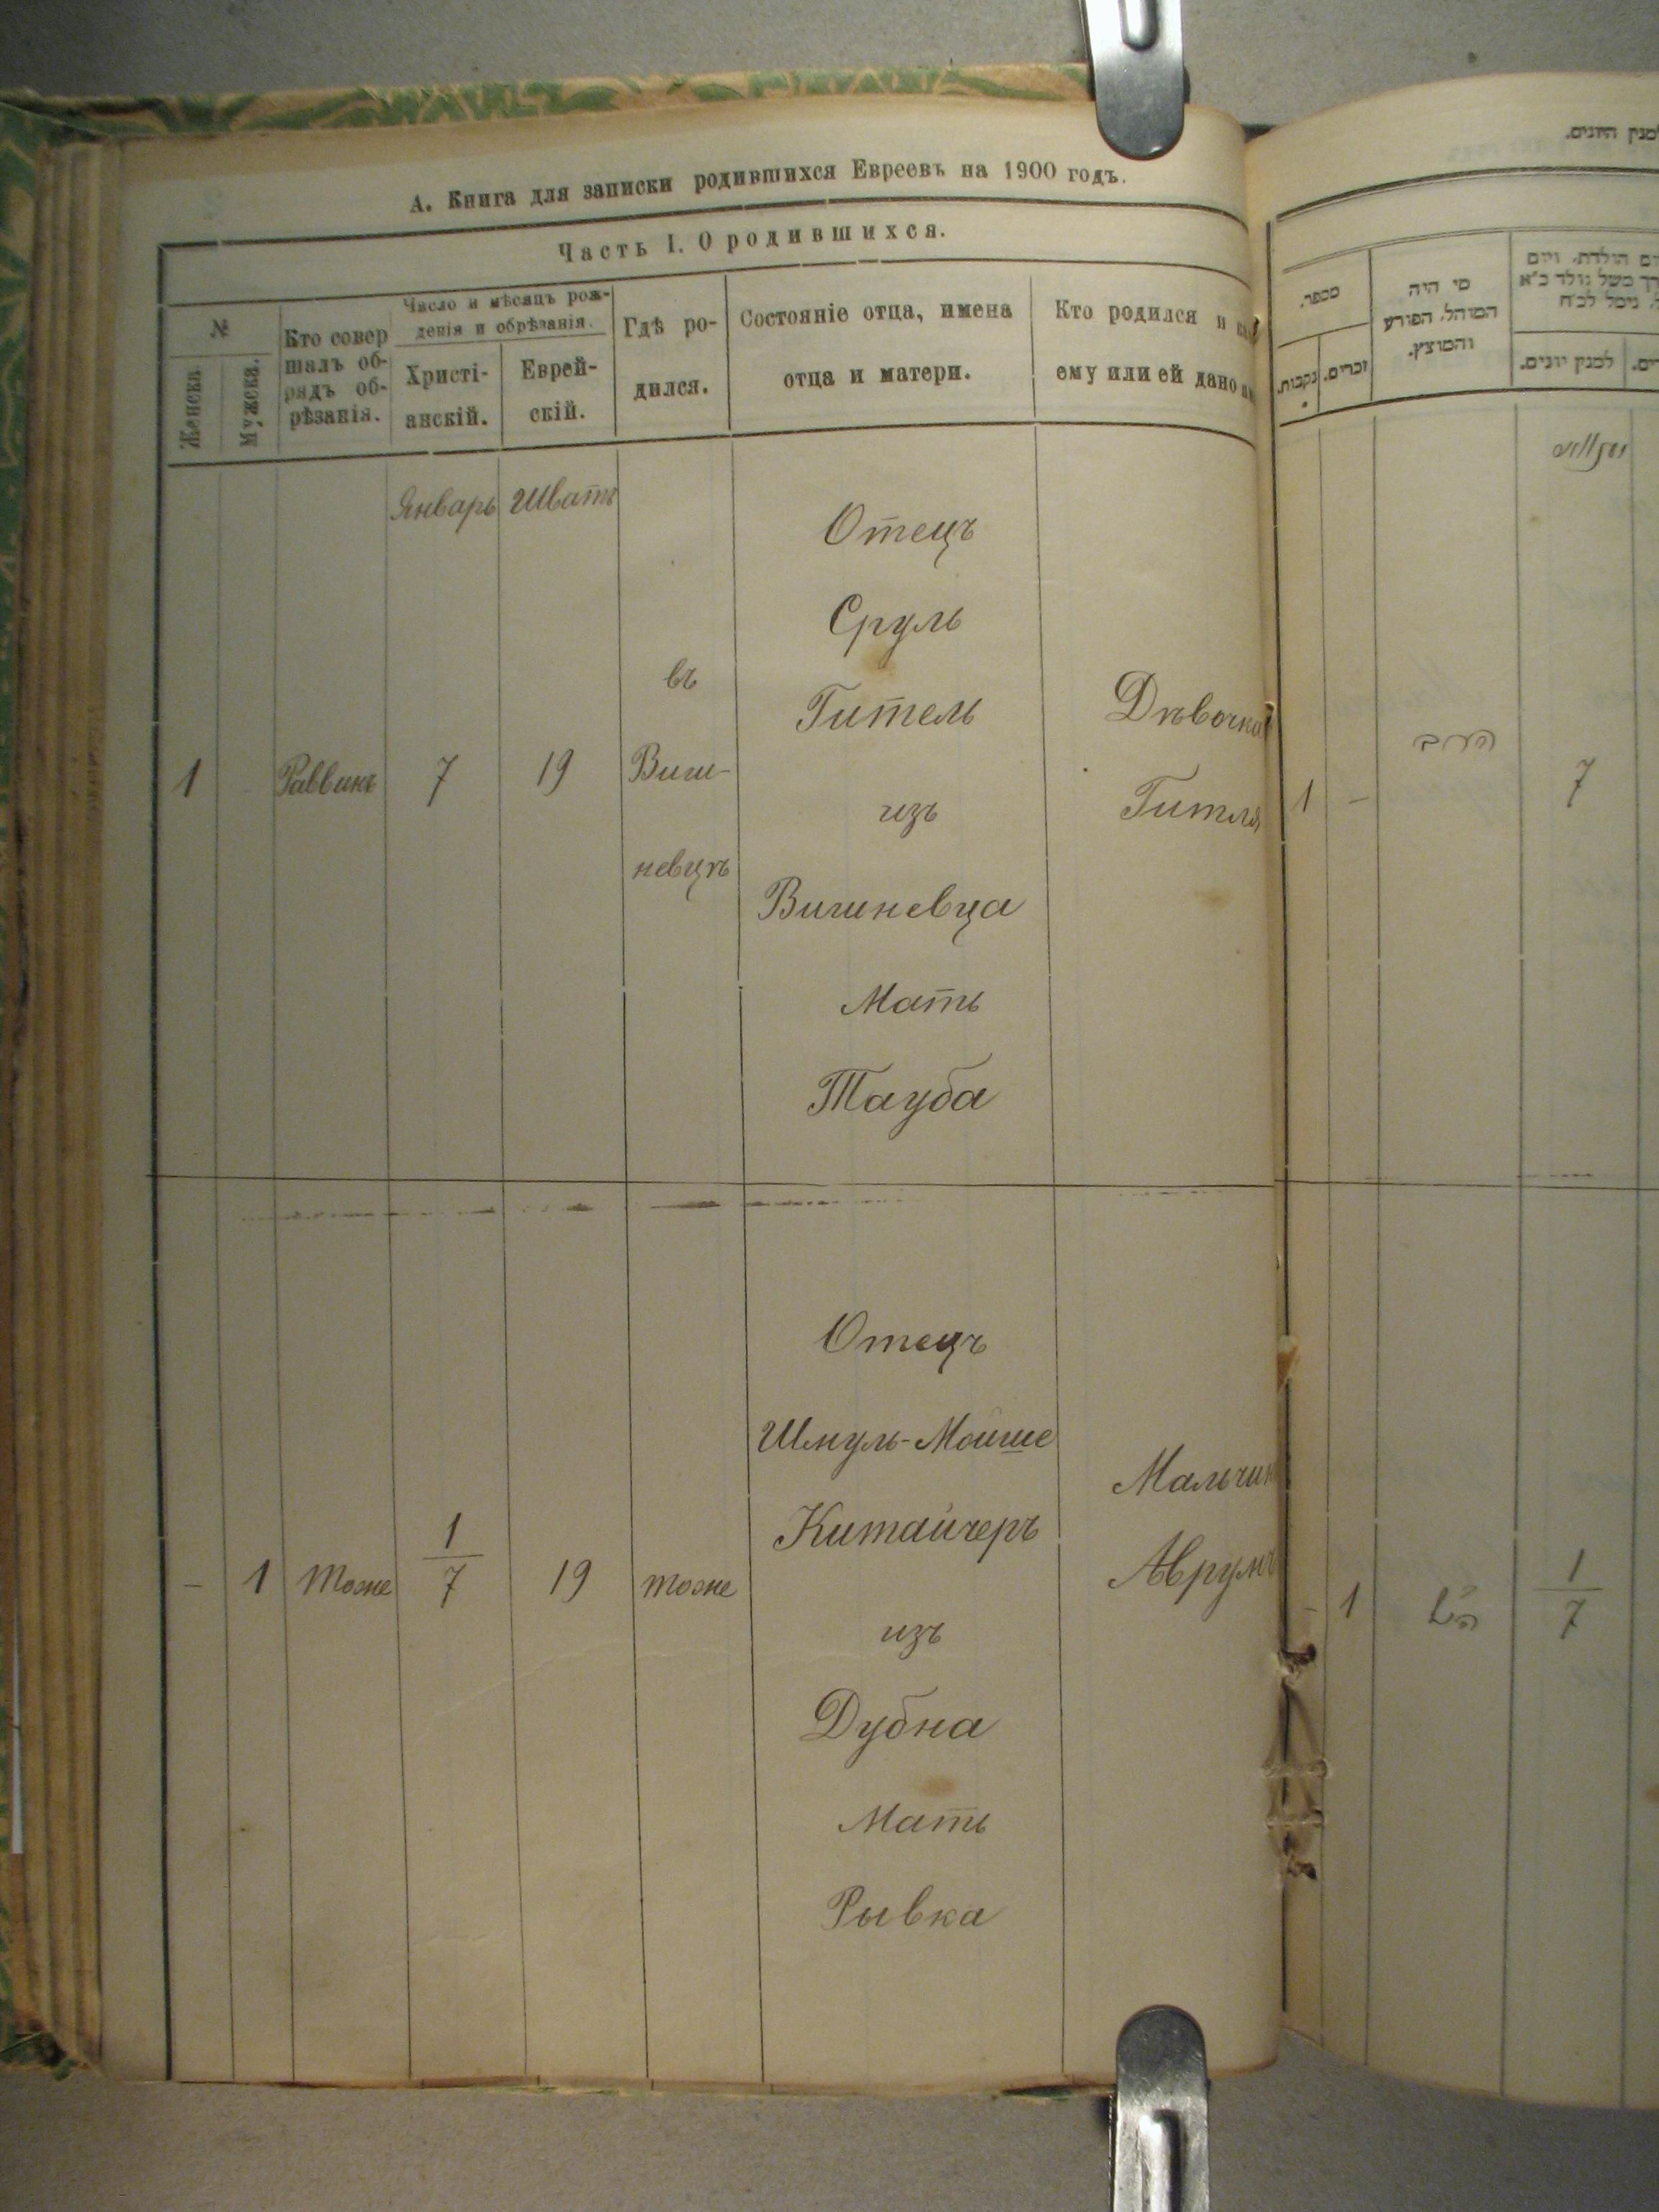 А. Книга для записки родившихся Евреевъ на 1900 годъ.
Часть I. О родившихся.
№
Женска
Мужска.
Кто совер
шалъ об-
рядъ об-
рѣзанія.
Число и мѣсяцъ рож-
денія и обрѣзанія.
Христі-
анскій.
Еврей-
скій.
Гдѣ ро-
дился.
Состояніе отца, имена
отца и матери.
Кто родился и
ему или ей дано
Январь Шватъ
1 Раввинъ 7 19
въ
Виш-
невцѣ
Отецъ
Сруль
Гитель
изъ
Вишневца
Мать
Тауба
Дѣвочка
Гитля
- 1 Тоже 1/7 19 тоже
Отецъ
Шмуль-Мойше
Китайчеръ
изъ
Дубна
Мать
Рывка
Мальчик
Аврумъ
למנין היונים.
מספר.
נקבות.
זכרים.
מי היה
המוהל, הפורע
והמוצץ.
יום הולדת, ויום
למנין יונים.
1 - הרב 7
- 1 1/7